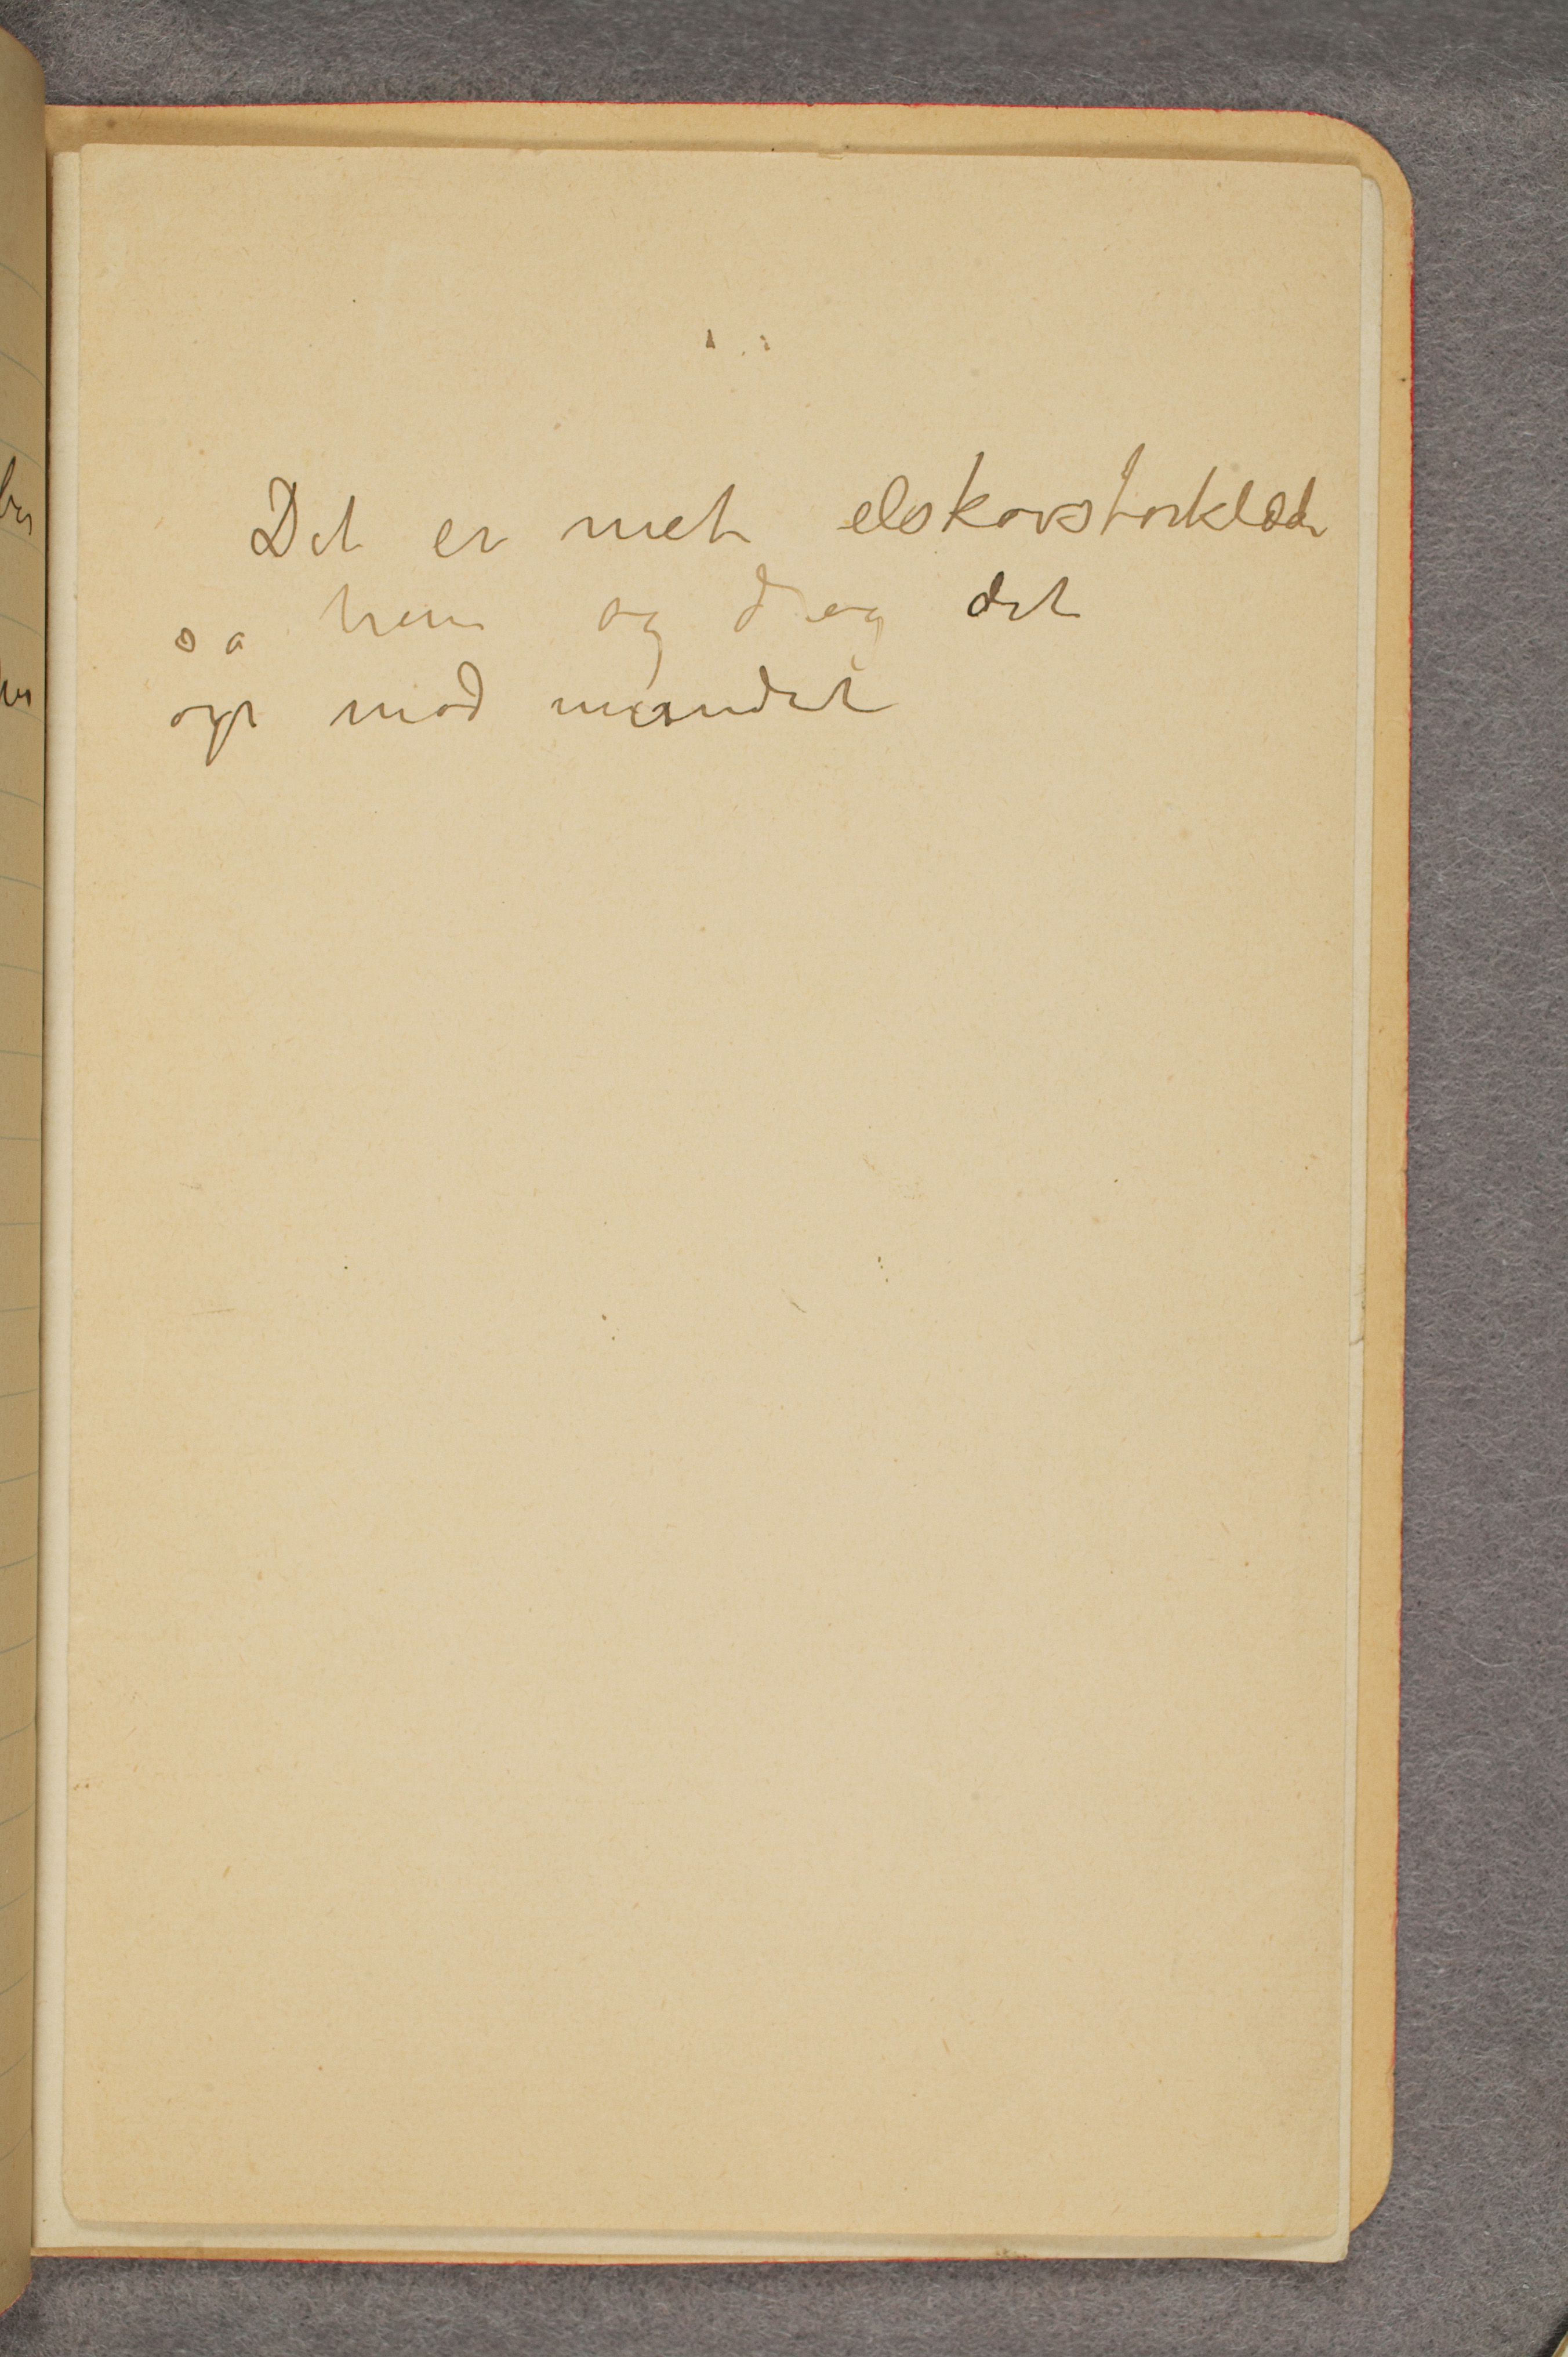 Det er met elskovstorklæde
sa hun og drog det
op mod mundet